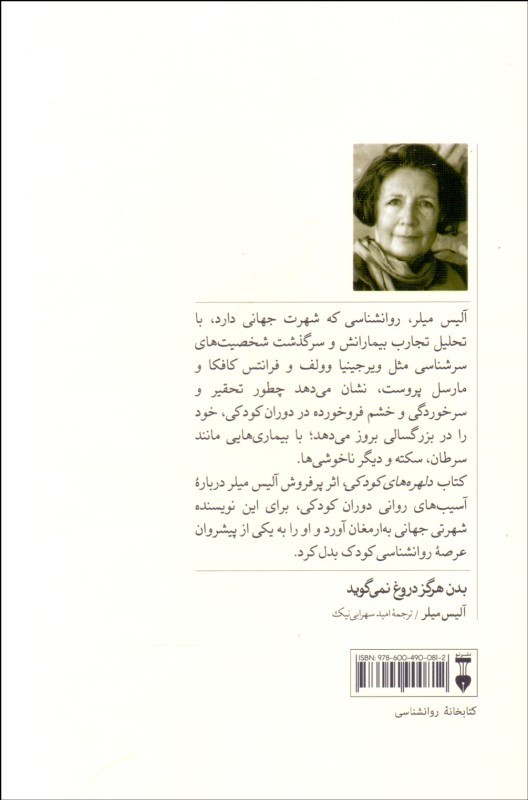 آلیس میلر، روانشناسی که شهرت جهانی دارد، با
تحلیل تجارب بیمارانش و سرگذشت شخصیت‌های
سرشناسی مثل ویرجینیا وولف و فرانتس کافکا و
مارسل پروست، نشان می‌دهد چطور تحقیر و
سرخوردگی و خشم فروخورده در دوران کودکی، خود
را در بزرگسالی بروز می‌دهد؛ با بیماری‌هایی مانند
سرطان، سکته و دیگر ناخوشی‌ها.
کتاب دلهره‌های کودکی، اثر پرفروش آلیس میلر دربارهٔ
آسیب‌های روانی دوران کودکی، برای این نویسنده
شهرتی جهانی به‌ارمغان آورد و او را به یکی از پیشروان
عرصهٔ روانشناسی کودک بدل کرد.
بدن هرگز دروغ نمی‌گوید
آلیس میلر / ترجمهٔ امید سهرابی‌نیک
ISBN: 978-600-490-081-2
نشر نو
کتابخانهٔ روانشناسی